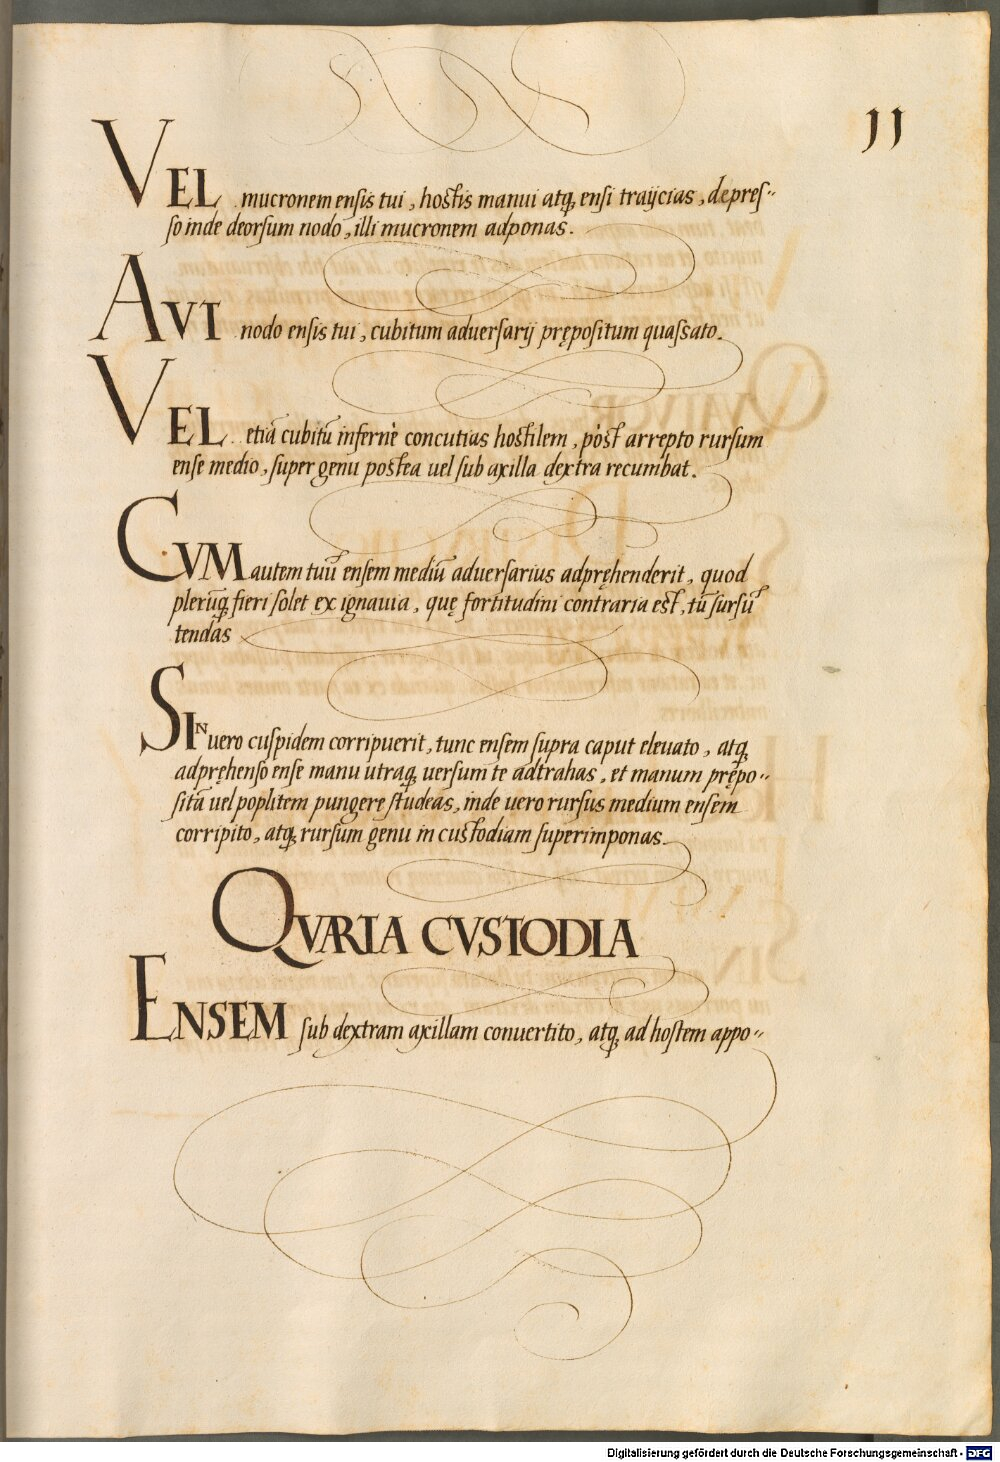 11
VEL mucronem ensis tui, hostis manui atq; ensi traijcias, depres-
so inde deorsum nodo, illi mucronem adponas.
AVT nodo ensis tui, cubitum aduersarij prępositum quassato.
VEL etiā cubitū infernè concutias hostilem, pòst arrepto rursum
ense medio, super genu postea uel sub axilla dextra recumbat.
CVM autem tuū ensem mediū aduersarius adpręhenderit, quod
plerūq; fieri solet ex ignauia, quę fortitudini contraria est, tū sursū
tendas
SIN uero cuspidem corripuerit, tunc ensem supra caput eleuato, atq;
adpręhenso ense manu utraq; uersum te adtrahas, et manum prępo-
sitā uel poplitem pungere studeas, inde uero rursus medium ensem
corripito, atq; rursum genu in custodiam superimponas.
QVARTA CVSTODIA
ENSEM sub dextram axillam conuertito, atq; ad hostem appo-
Digitalisierung gefördert durch die Deutsche Forschungsgemeinschaft - DFG